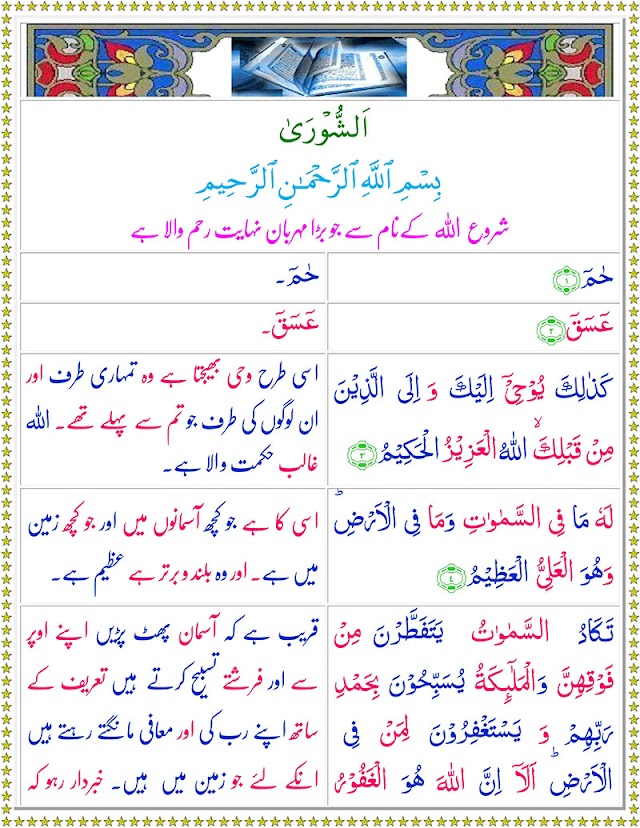 اَلشُّوْرٰی
بِسْمِ ٱللَّهِ ٱلرَّحْمَـٰنِ ٱلرَّحِيمِ
شروع اللہ کے نام سے جو بڑا مہربان نہایت رحم والا ہے
حٰمٓ ۝۱
حٰمٓ۔
عٓسٓقٓ ۝۲
عٓسٓقٓ۔
كَذٰلِكَ يُوْحِىْۤ اِلَيْكَ وَ اِلَى الَّذِيْنَ
مِنْ قَبْلِكَ ۙ اللّٰهُ الْعَزِيْزُ الْحَكِيْمُ ۝۳
اسی طرح وحی بھیجتا ہے وہ تمہاری طرف اور
ان لوگوں کی طرف جو تم سے پہلے تھے۔ اللہ
غالب حکمت والا ہے۔
لَهٗ مَا فِى السَّمٰوٰتِ وَمَا فِى الْاَرْضِ ؕ
وَهُوَ الْعَلِىُّ الْعَظِيْمُ ۝۴
اسی کا ہے جو کچھ آسمانوں میں اور جو کچھ زمین
میں ہے۔ اور وہ بلند و برتر ہے عظیم ہے۔
تَكَادُ السَّمٰوٰتُ يَتَفَطَّرْنَ مِنْ
فَوْقِهِنَّ وَالْمَلٰٓٮِٕكَةُ يُسَبِّحُوْنَ بِحَمْدِ
رَبِّهِمْ وَ يَسْتَغْفِرُوْنَ لِمَنْ فِى
الْاَرْضِ ؕ اَلَاۤ اِنَّ اللّٰهَ هُوَ الْغَفُوْرُ
قریب ہے کہ آسمان پھٹ پڑیں اپنے اوپر
سے اور فرشتے تسبیح کرتے ہیں تعریف کے
ساتھ اپنے رب کی اور معافی مانگتے رہتے ہیں
انکے لئے جو زمین میں ہیں۔ خبردار رہو کہ